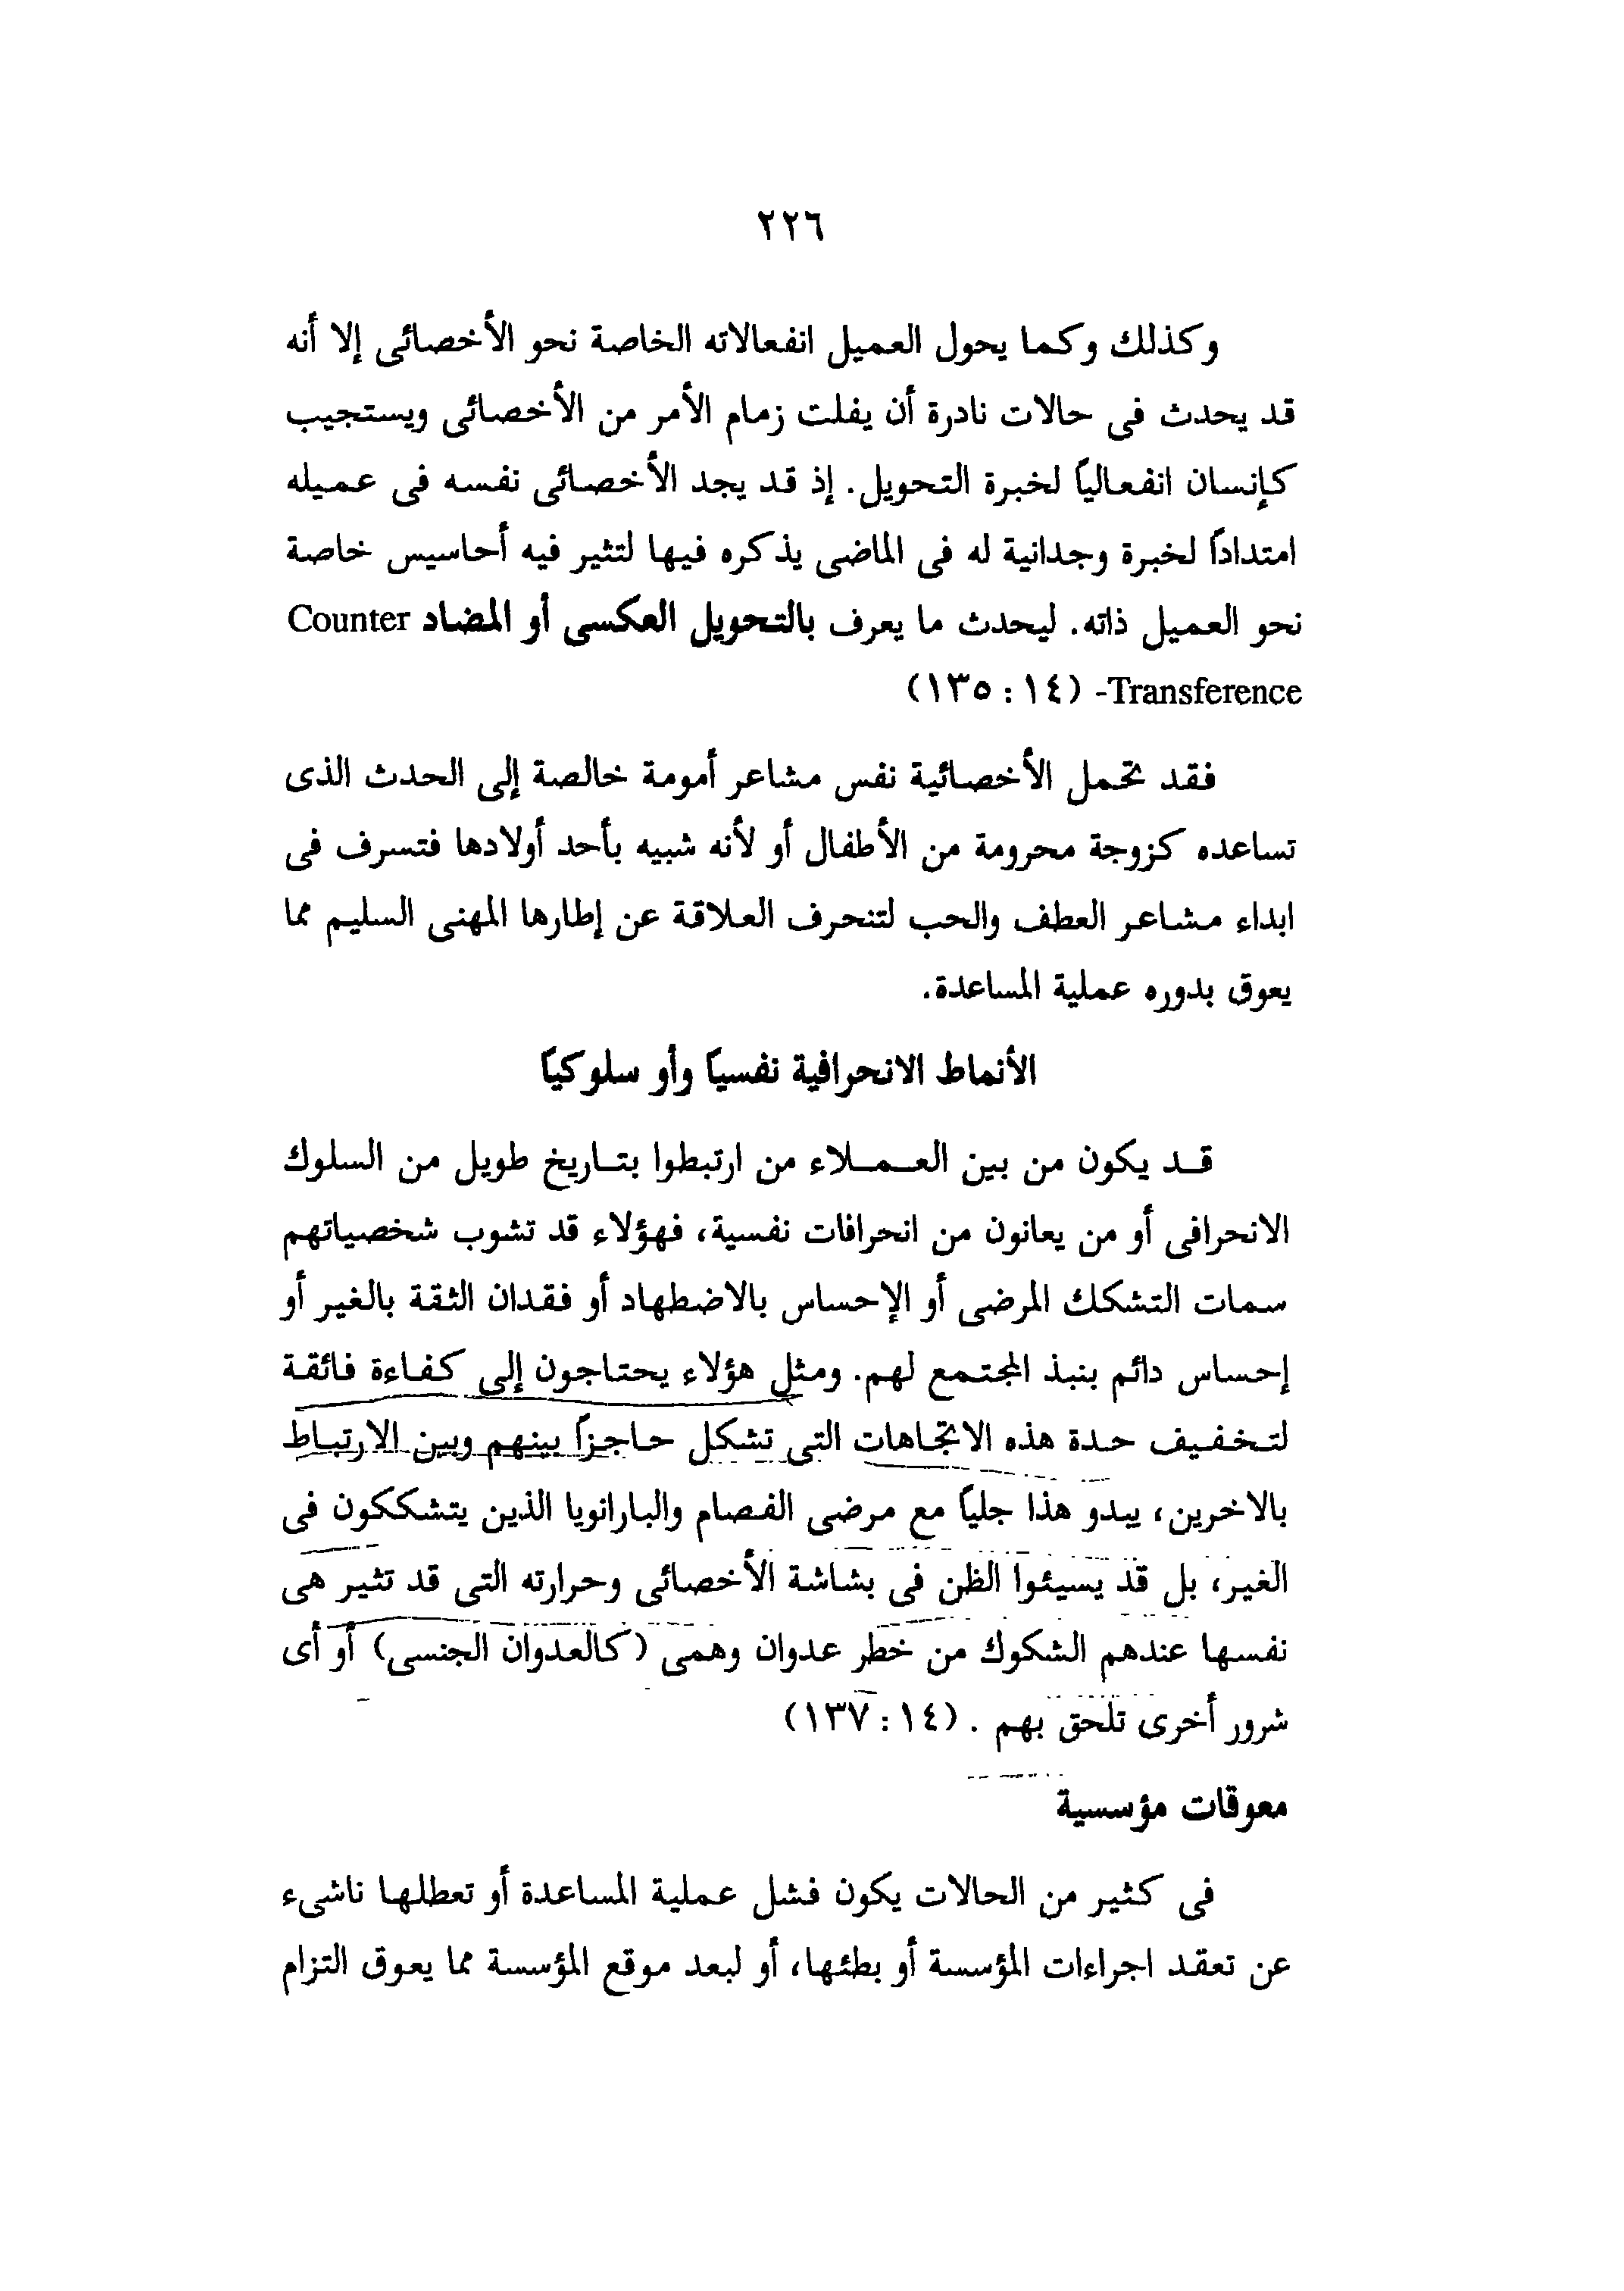 ٢٢٦
وكذلك وكما يحول العميل انفعالاته الخاصة نحو الأخصائى إلا أنه
قد يحدث فى حالات نادرة أن يفلت زمام الأمر من الأخصائى ويستجيب
كإنسان انفعالياً لخبرة التحويل. إذ قد يجد الأخصائى نفسه فى عميله
امتداداً لخبرة وجدانية له فى الماضى يذكره فيها لتثير فيه أحاسيس خاصة
نحو العميل ذاته. ليحدث ما يعرف بالتحويل العكسى أو المضاد Counter
Transference- (١٤ : ١٣٥)
فقد تحمل الأخصائية نفس مشاعر أمومة خالصة إلى الحدث الذى
تساعده كزوجة محرومة من الأطفال أو لأنه شبيه بأحد أولادها فتسرف فى
ابداء مشاعر العطف والحب لتنحرف العلاقة عن إطارها المهنى السليم مما
يعوق بدوره عملية المساعدة.
الأنماط الانحرافية نفسياً وأو سلوكياً
قد يكون من بين العملاء من ارتبطوا بتاريخ طويل من السلوك
الانحرافى أو من يعانون من انحرافات نفسية، فهؤلاء قد تشوب شخصياتهم
سمات التشكك المرضى أو الإحساس بالاضطهاد أو فقدان الثقة بالغير أو
إحساس دائم بنبذ المجتمع لهم. ومثل هؤلاء يحتاجون إلى كفاءة فائقة
لتخفيف حدة هذه الاتجاهات التى تشكل حاجزاً بينهم وبين الارتباط
بالاخرين، يبدو هذا جلياً مع مرضى الفصام والبارانويا الذين يتشككون فى
الغير، بل قد يسيئوا الظن فى بشاشة الأخصائى وحرارته التى قد تثير هى
نفسها عندهم الشكوك من خطر عدوان وهمى (كالعدوان الجنسى) أو أى
شرور أخرى تلحق بهم . (١٤ : ١٣٧)
معوقات مؤسسية
فى كثير من الحالات يكون فشل عملية المساعدة أو تعطلها ناشىء
عن تعقد اجراءات المؤسسة أو بطئها، أو لبعد موقع المؤسسة مما يعوق التزام